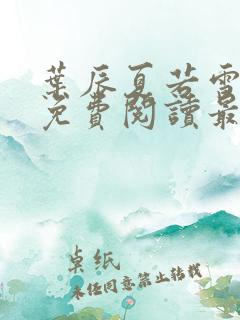 葉辰夏若雪
免費閱讀最
卓紙
未经同意禁止转载